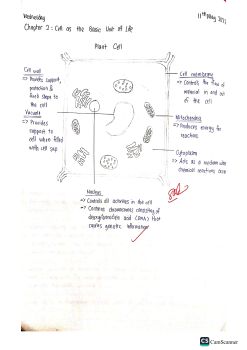 Wednesday
11th May 2022
Chapter 2 : Cell as the Basic Unit of Life
Plant Cell
Cell wall
=> Provides support,
protection &
fixed shape to
the cell
Vacuole
=> Provides
support to
cell when filled
with cell sap
Cell membrane
=> Controls the flow of
material in and out
of the cell
Mitochondria
=> Produces energy for
reactions
Cytoplasm
=> Acts as a medium when
chemical reactions occur
Nucleus
=> Controls all activities in the cell
=> Contains chromosomes consisting of
deoxyribonucleic acid (DNA) that
carries genetic information
CS CamScanner